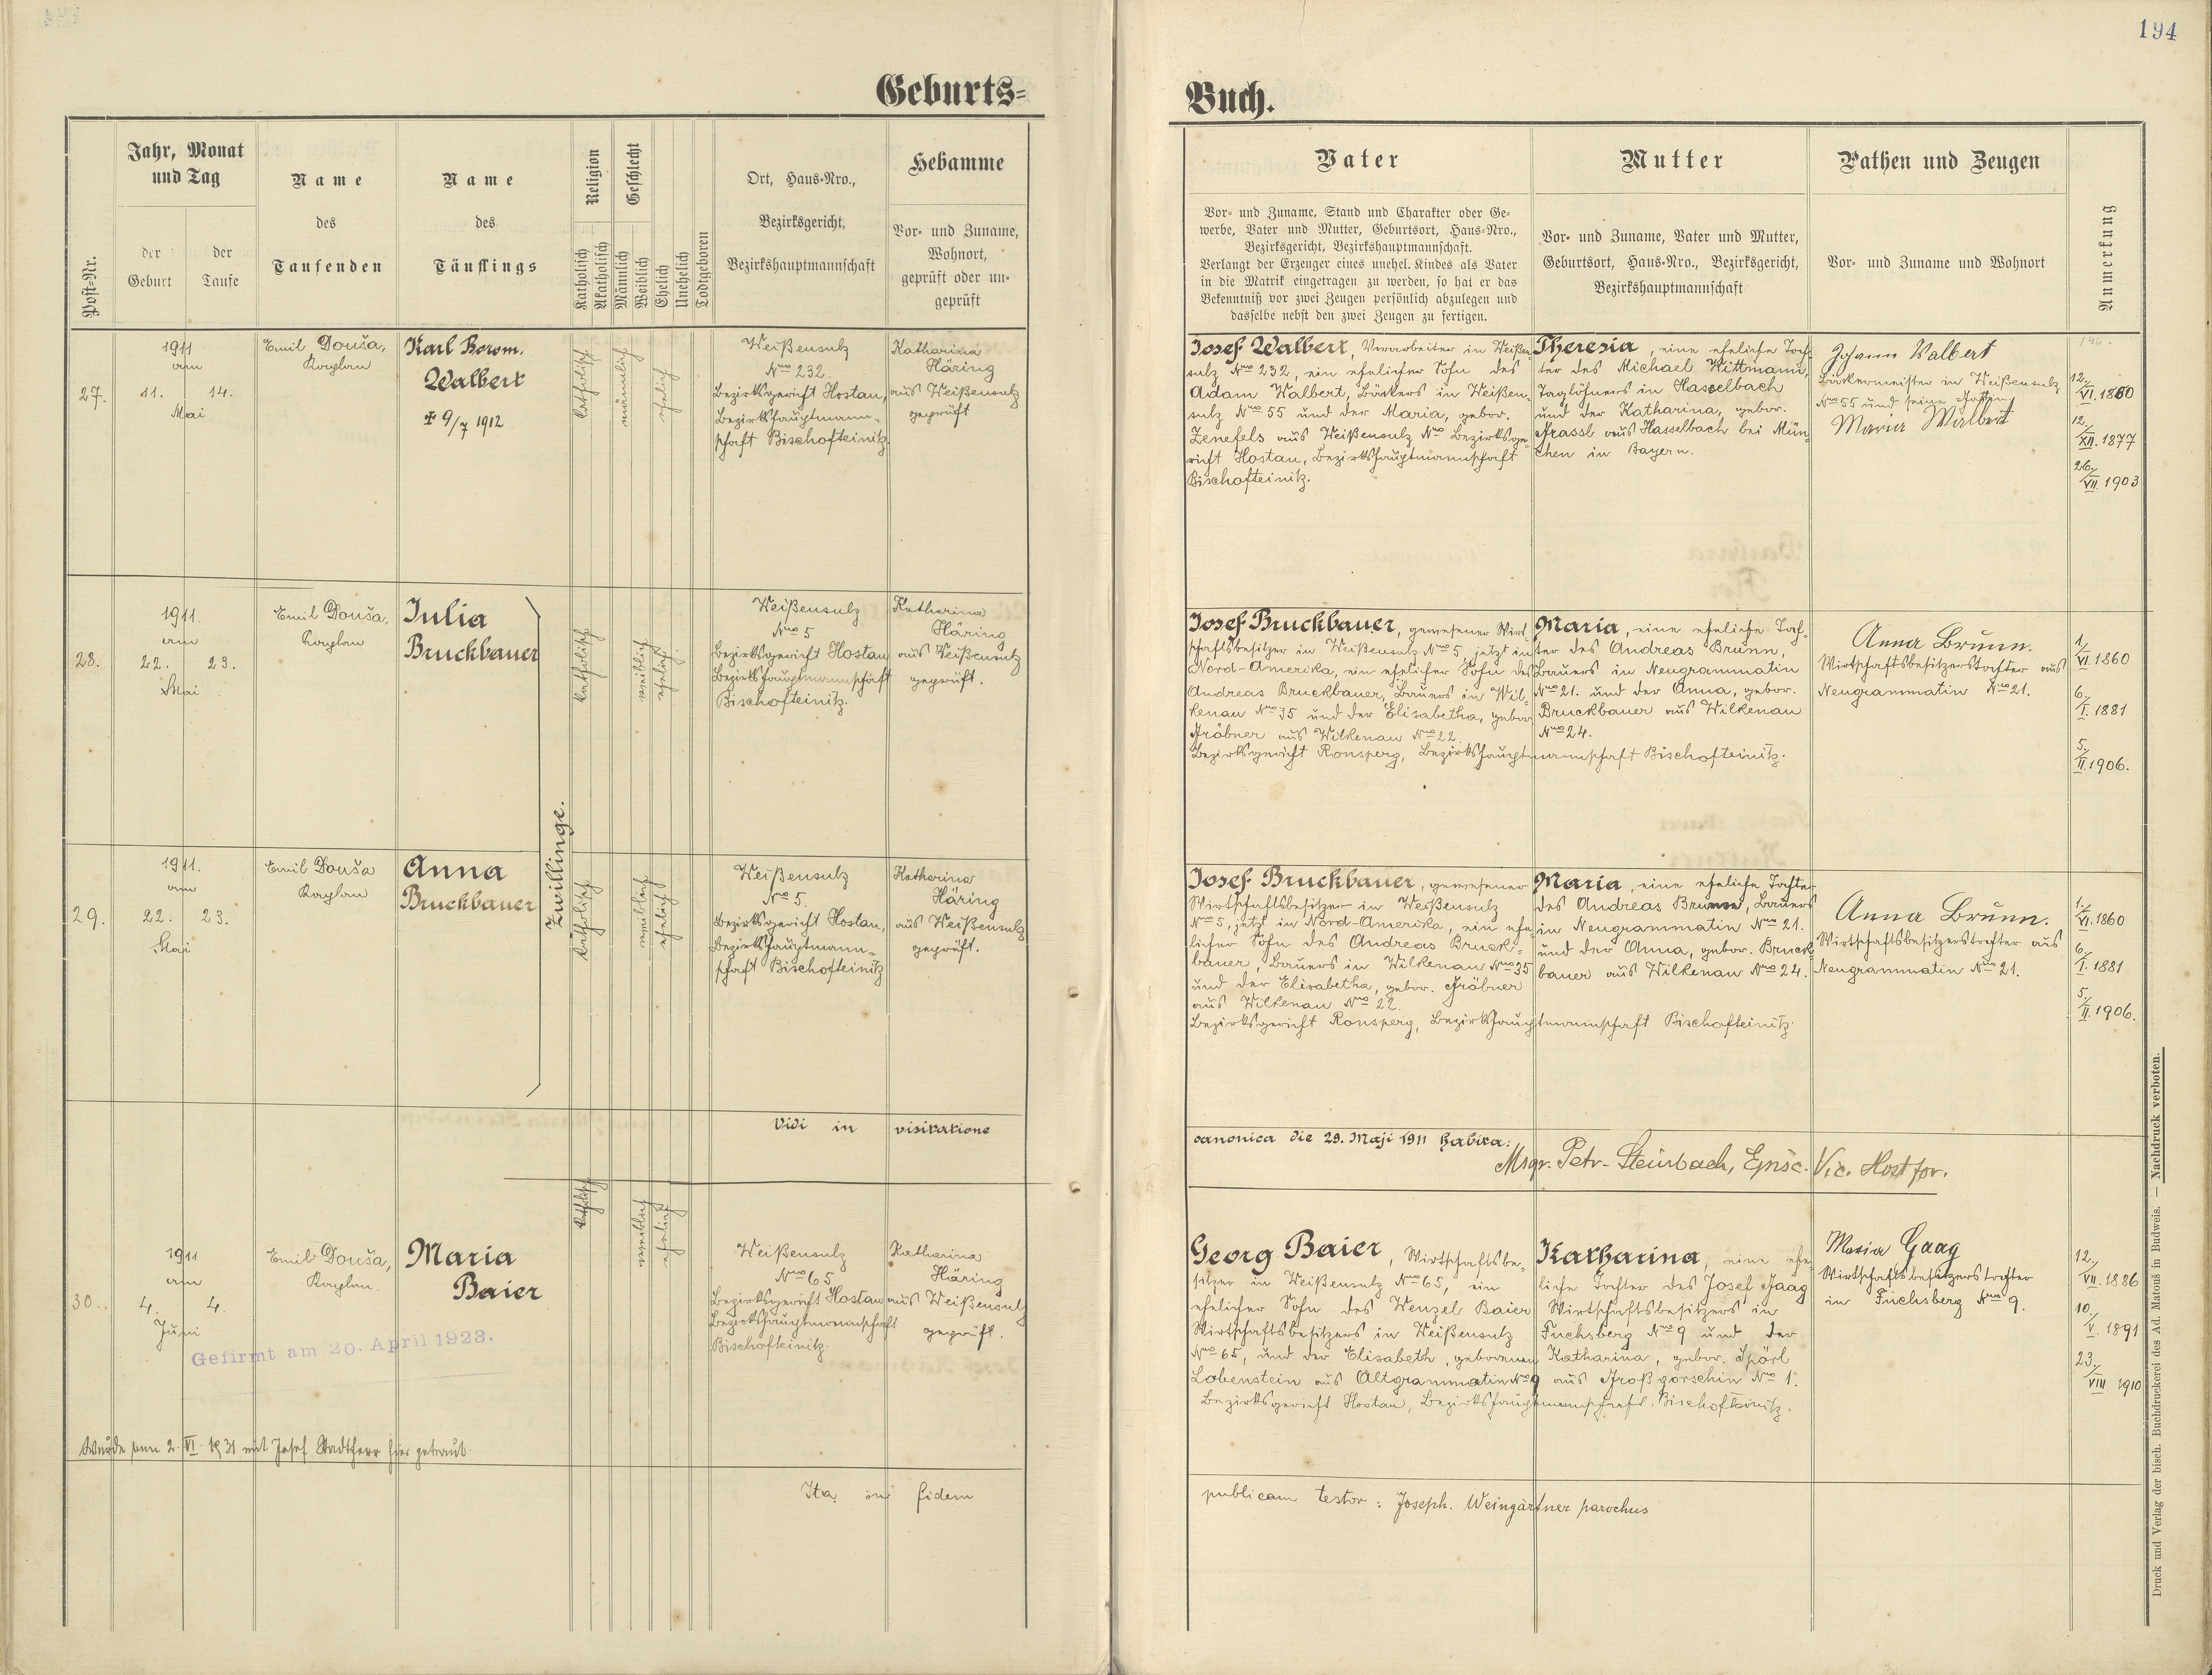 194
Geburts=
Buch.
Post=Nr.
Jahr, Monat
und Tag
der
Geburt
der
Taufe
Name
des
Taufenden
Name
des
Täuflings
Religion
Katholisch
Akatholisch
Geschlecht
Männlich
Weiblich
Ehelich
Unehelich
Todtgeboren
Ort, Haus=Nro.,
Bezirksgericht,
Bezirkshauptmannschaft
Hebamme
Vor= und Zuname,
Wohnort,
geprüft oder un=
geprüft
Vater
Vor= und Zuname, Stand und Charakter oder Ge=
werbe, Vater und Mutter, Geburtsort, Haus=Nro.,
Bezirksgericht, Bezirkshauptmannschaft.
Verlangt der Erzeuger eines unehel. Kindes als Vater
in die Matrik eingetragen zu werden, so hat er das
Bekenntniß vor zwei Zeugen persönlich abzulegen und
dasselbe nebst den zwei Zeugen zu fertigen.
Mutter
Vor= und Zuname, Vater und Mutter,
Geburtsort, Haus=Nro., Bezirksgericht,
Bezirkshauptmannschaft
Pathen und Zeugen
Vor= und Zuname und Wohnort
Anmerkung
27.
1911
am
11. 14.
Mai
Emil Douša,
Kaplan
Karl Borom.
Walbert
✠ 9/7 1912
katholisch
männlich
ehelich
Weißensulz
Nro 232.
Bezirksgericht Hostau,
Bezirkshauptmann-
schaft Bischofteinitz.
Katharina
Häring
aus Weißensulz
geprüft
Josef Walbert, Vorarbeiter in Weißen-
sulz Nro 232, ein ehelicher Sohn des
Adam Walbert, Bäckers in Weißen-
sulz Nro 55 und der Maria, gebor.
Zenefels aus Weißensulz Nro Bezirksge-
richt Hostau, Bezirkshauptmannschaft
Bischofteinitz.
Theresia, eine eheliche Toch-
ter des Michael Wittmann,
Taglöhners in Hasselbach
und der Katharina, gebor.
Grassl aus Hasselbach bei Mün-
chen in Bayern.
Johann Walbert
Bäckermeister in Weißensulz
Nro 55 und seine Gattin
Maria Walbert
12./VI. 1880
12./XII. 1877
26./VII. 1903
28.
1911.
am
22. 23.
Mai
Emil Douša,
Kaplan
Julia
Bruckbauer
Zwillinge.
katholisch
weiblich
ehelich
Weißensulz
Nro 5
Bezirksgericht Hostau
Bezirkshauptmannschaft
Bischofteinitz.
Katharina
Häring
aus Weißensulz
geprüft.
Josef Bruckbauer, gewesener Wirt-
schaftsbesitzer in Weißensulz Nro 5, jetzt in
Nord-Amerika, ein ehelicher Sohn des
Andreas Bruckbauer, Bauers in Wil-
kenau Nro 35 und der Elisabetha, gebor.
Gröbner aus Wilkenau Nro 22.
Bezirksgericht Ronsperg, Bezirkshauptmannschaft Bischofteinitz.
Maria, eine eheliche Toch-
ter des Andreas Brunn,
Bauers in Neugrammatin
Nro 21. und der Anna, gebor.
Bruckbauer aus Wilkenau
Nro 24.
Anna Brunn.
Wirtschaftsbesitzerstochter aus
Neugrammatin Nro 21.
1/VI. 1860
6./I. 1881
5./II. 1906.
29.
1911.
am
22. 23.
Mai
Emil Douša
Kaplan
Anna
Bruckbauer
katholisch
weiblich
ehelich
Weißensulz
Nro 5.
Bezirksgericht Hostau,
Bezirkshauptmann-
schaft Bischofteinitz
Katharina
Häring
aus Weißensulz
geprüft.
Josef Bruckbauer, gewesener
Wirtschaftsbesitzer in Weißensulz
Nro 5, jetzt in Nord-Amerika, ein ehe-
licher Sohn des Andreas Bruck-
bauer, Bauers in Wilkenau Nro 35
und der Elisabetha, gebor. Gröbner
aus Wilkenau Nro 22.
Bezirksgericht Ronsperg, Bezirkshauptmannschaft Bischofteinitz.
Maria, eine eheliche Tochter
des Andreas Brunn, Bauers
in Neugrammatin Nro 21.
und der Anna, gebor. Bruck-
bauer aus Wilkenau Nro 24.
Anna Brunn.
Wirtschaftsbesitzerstochter aus
Neugrammatin Nro 21.
1./VI. 1860
6/I. 1881
5./II. 1906.
Vidi in visitatione
canonica die 29. Maji 1911 habita:
Msgr. Petr. Steinbach, Episc. Vic. Host for.
30.
1911
am
4. 4.
Juni
Emil Douša,
Kaplan.
Maria
Baier
katholisch
weiblich
ehelich
Weißensulz
Nro 65
Bezirksgericht Hostau
Bezirkshauptmannschaft
Bischofteinitz.
Katharina
Häring
aus Weißensulz
geprüft.
Georg Baier, Wirtschaftsbe-
sitzer in Weißensulz Nro 65, ein
ehelicher Sohn des Wenzel Baier
Wirtschaftsbesitzers in Weißensulz
Nro 65, und der Elisabeth, geborenen
Lobenstein aus Altgrammatin Nro 9
Bezirksgericht Hostau, Bezirkshauptmannschaft Bischofteinitz.
Katharina, eine ehe-
liche Tochter des Josef Gaag
Wirtschaftsbesitzers in
Fuchsberg Nro 9 und der
Katharina, gebor. Spörl
aus Großgorschin Nro 1.
Maria Gaag
Wirtschaftsbesitzerstochter
in Fuchsberg Nro 9.
12./VII. 1886
10./V. 1891
23./VIII. 1910
Gefirmt am 20. April 1923.
Wurde am 2. VI. 1931 mit Josef Stadtherr hier getraut.
Ita in fidem
publicam testor: Joseph. Weingärtner parochus
Druck und Verlag der bisch. Buchdruckerei des Ad. Matouš in Budweis. — Nachdruck verboten.